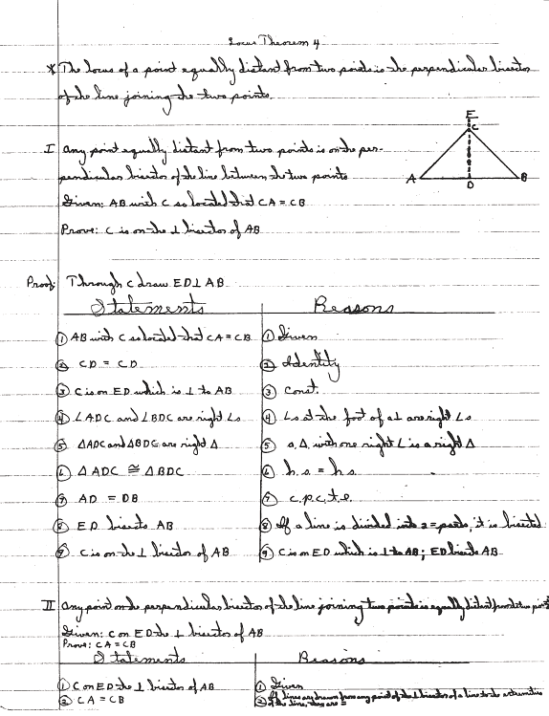 Locus Theorem 4
* The locus of a point equally distant from two points is the perpendicular bisector
of the line joining the two points.
E
C
A
D
B
I Any point equally distant from two points is on the per-
pendicular bisector of the line between the two points
Given: AB with C so located that CA = CB
Prove: C is on the ⊥ bisector of AB
Proof: Through C draw ED ⊥ AB
Statements Reasons
① AB with C so located that CA = CB ① Given
② CD = CD ② Identity
③ C is on ED which is ⊥ to AB ③ Const.
④ ∠ADC and ∠BDC are right ∠s ④ ∠s at the foot of a ⊥ are right ∠s
⑤ △ADC and △BDC are right △ ⑤ a △ with one right ∠ is a right △
⑥ △ADC ≅ △BDC ⑥ h.s. = h.s.
⑦ AD = DB ⑦ c.p.c.t.e.
⑧ ED bisects AB ⑧ If a line is divided into 2 = parts, it is bisected
⑨ C is on the ⊥ bisector of AB ⑨ C is on ED which is ⊥ to AB; ED bisects AB
II Any point on the perpendicular bisector of the line joining two points is equally distant from the two points
Given: C on ED the ⊥ bisector of AB
Prove: CA = CB
Statements Reasons
① C on ED the ⊥ bisector of AB ① Given
② CA = CB ② If lines are drawn from any point of the ⊥ bisector of a line to the extremities
of the line, they are =